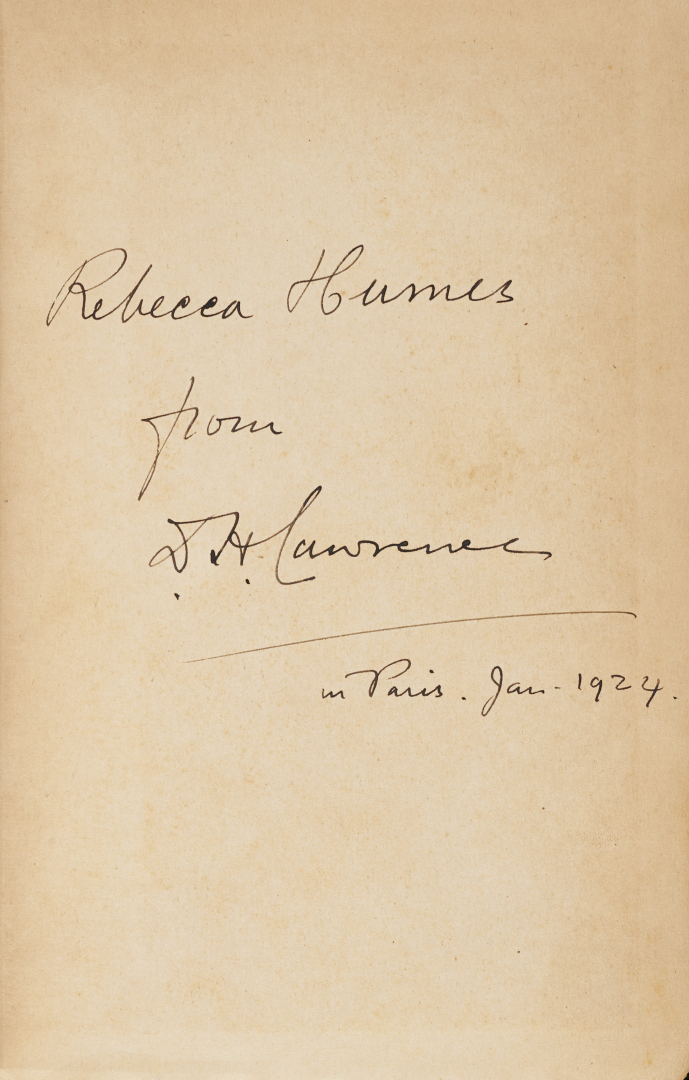 Rebecca Humes
from
D. H. Lawrence
in Paris. Jan. 1924.